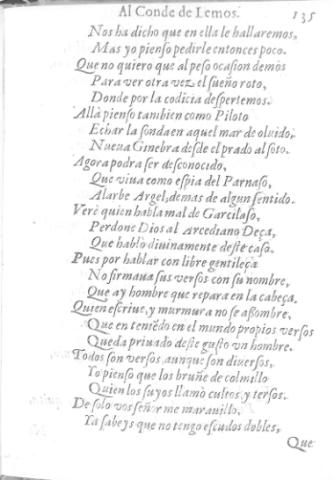 Al Conde de Lemos. 135
Nos ha dicho que en ella le hallaremos,
Mas yo pienso pedirle entonces poco.
Que no quiero que al peso ocasion demòs
Para ver otra vez el sueño roto,
Donde por la codicia despertemos.
Allà pienso tambien como Piloto
Echar la sonda en aquel mar de oluido,
Nueua Ginebra desde el prado al soto.
Agora podra ser desconocido,
Que viua como espia del Parnaso,
Alarbe Argel, demas de algun sentido.
Verè quien habla mal de Garcilaso,
Perdone Dios al Arcediano Deça,
Que hablò diuinamente deste caso.
Pues por hablar con libre gentileça
No firmaua sus versos con su nombre,
Que ay hombre que repara en la cabeça.
Quien escriue, y murmura no se assombre,
Que en teniẽdo en el mundo propios versos
Queda priuado deste gusto vn hombre.
Todos son versos, aunque son diuersos,
Yo pienso que los bruñe de colmillo
Quien los suyos llamò cultos, y tersos.
De solo vos señor me marauillo,
Ya sabeys que no tengo escudos dobles,
Que